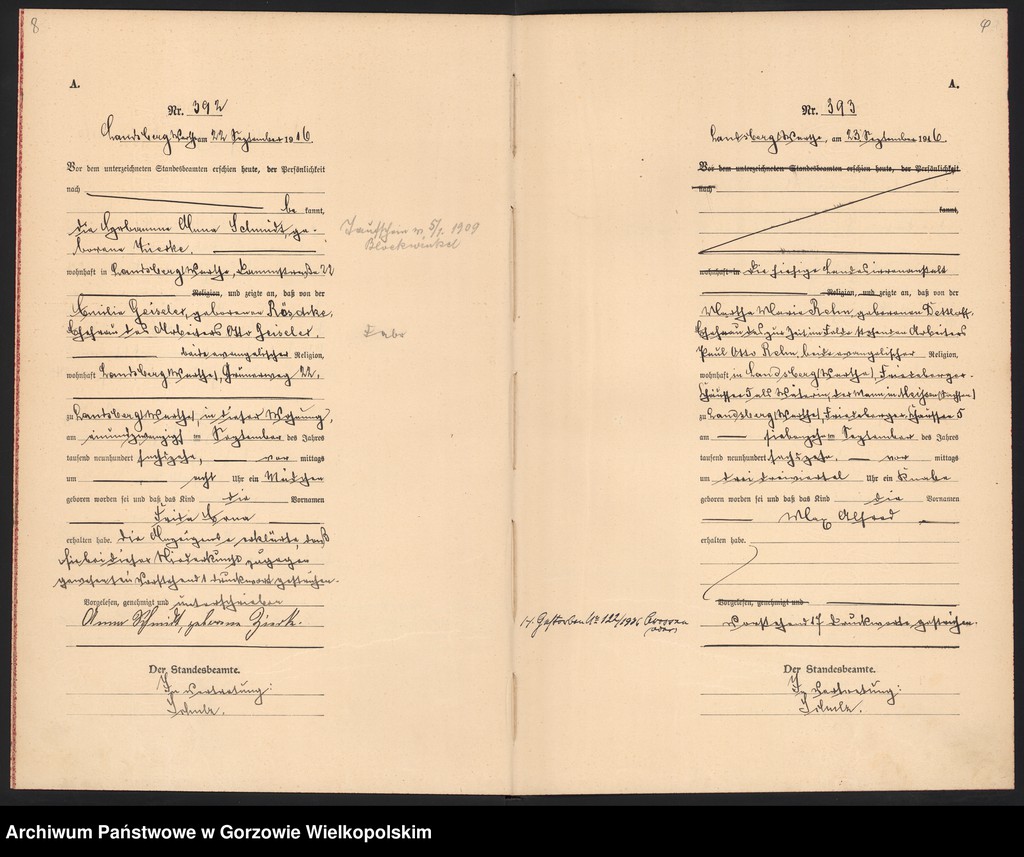 8
A.
Nr. 392
Landsberg Warthe am 22 September 1916.
Vor dem unterzeichneten Standesbeamten erschien heute, der Persönlichkeit
nach
be kannt,
die Hebamme Anna Schmidt, ge-
borene Zierke.
wohnhaft in Landsberg Warthe, Dammstraße 22
Religion, und zeigte an, daß von der
Emilie Geiseler, geborenen
Ehefrau des Arbeiters Otto Geiseler,
beide evangelischer Religion,
wohnhaft Landsberg (Warthe), Grünerweg 22,
zu Landsberg (Warthe), in dieser Wohnung,
am einundzwanzigsten September des Jahres
tausend neunhundert sechszehn, vor mittags
um acht Uhr ein Mädchen
geboren worden sei und daß das Kind die Vornamen
Frida Erna
erhalten habe. Die Anzeigende erklärte, daß
sie bei dieser Niederkunft zugegen
gewesen sei. Vorstehend 1 Druckwort gestrichen.
Vorgelesen, genehmigt und unterschrieben
Anna Schmidt, geborene Zierke.
Der Standesbeamte.
In Vertretung:
1909
A.
Nr. 393
Landsberg Warthe, am 23 September 1916.
Vor dem unterzeichneten Standesbeamten erschien heute, der Persönlichkeit
nach
kannt,
wohnhaft in Die hiesige Landesirrenanstalt
Religion, und zeigte an, daß von der
Martha Marie Rehm, geborenen Dettloff,
Ehefrau des zur Zeit im Felde stehenden Arbeiters
Paul Otto Rehm, beide evangelischer Religion,
wohnhaft in Landsberg (Warthe) Friedeberger-
der Mann in Meißen (Sachsen)
zu Landsberg (Warthe) Friedeberger Chaussee 5
am siebzehn ten September des Jahres
tausend neunhundert sechszehn, vor mittags
um drei dreiviertel Uhr ein Knabe
geboren worden sei und daß das Kind die Vornamen
Max Alfred
erhalten habe.
Vorgelesen, genehmigt und
Vorstehend 17 Druckworte gestrichen.
Gestorben Nr. 122/1936
Der Standesbeamte.
In Vertretung:
Archiwum Państwowe w Gorzowie Wielkopolskim